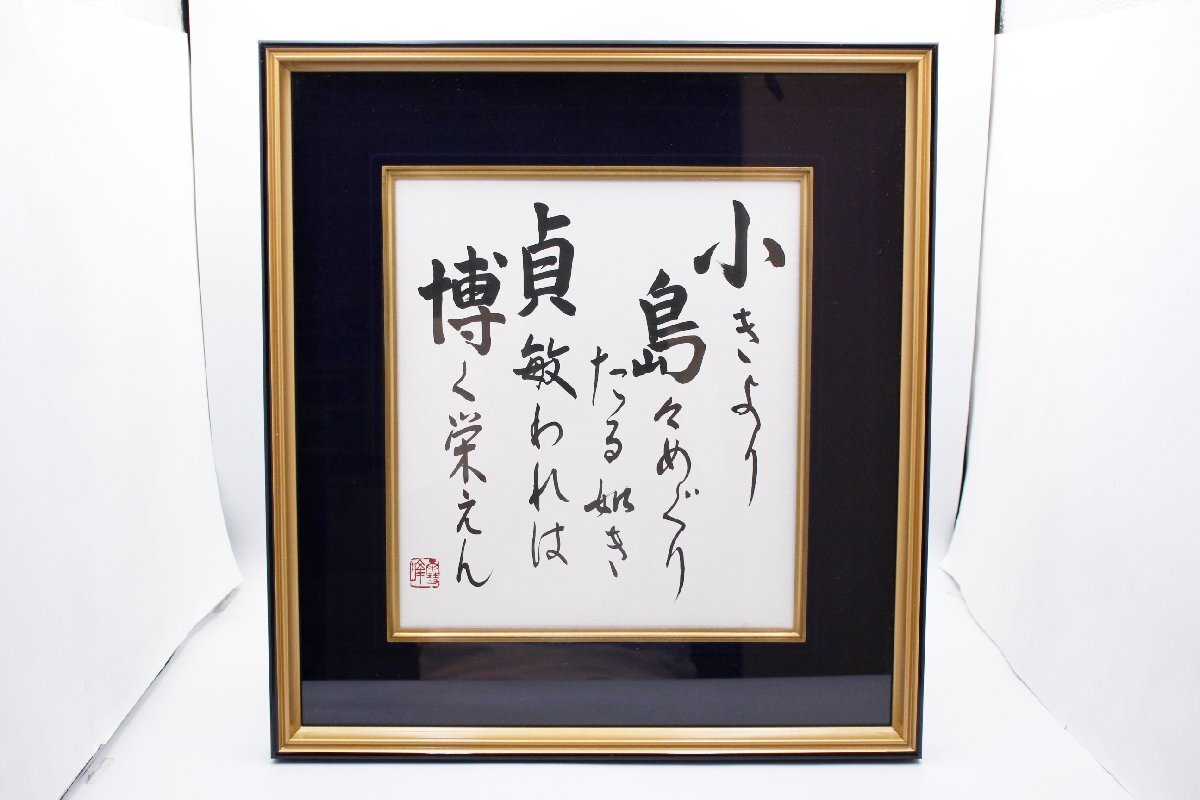 小きより
島々めぐり
たる如き
貞敏われは
博く栄えん